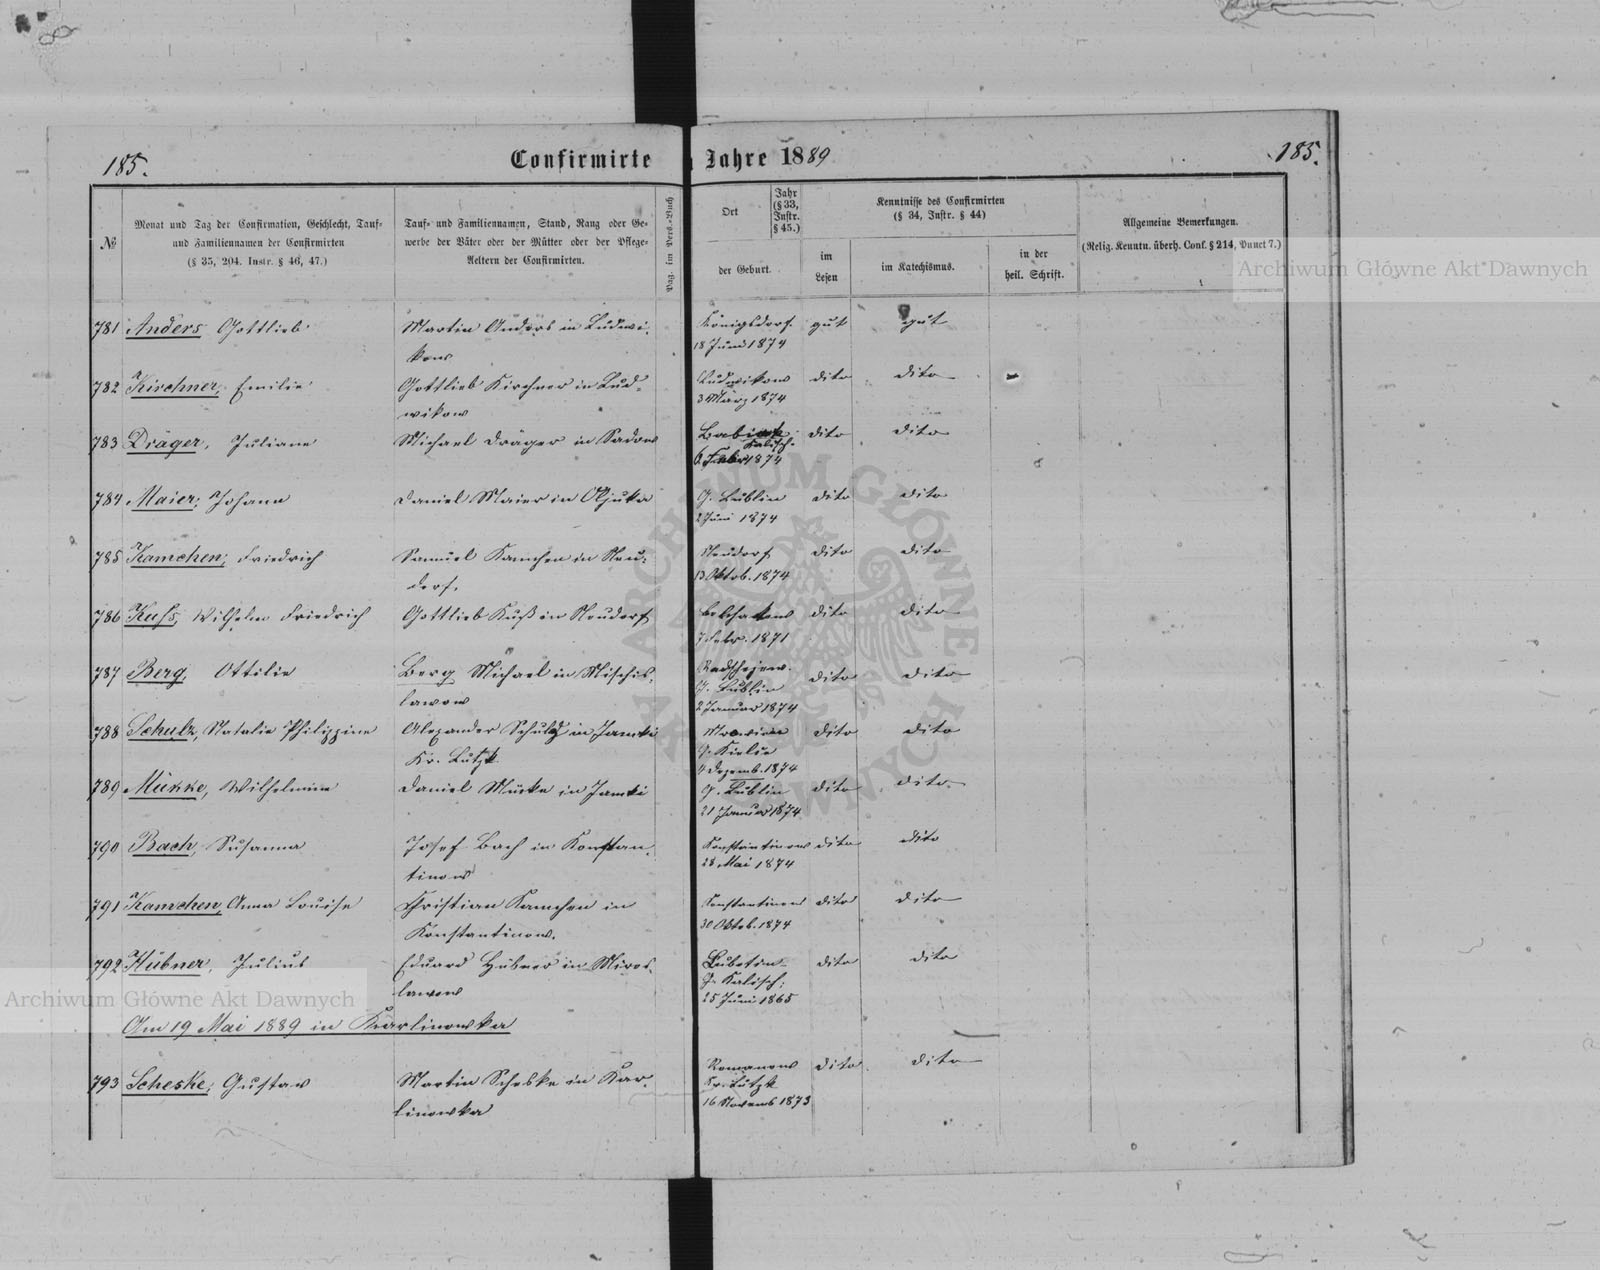 185.
Confirmirte
Jahre 1889
185.
№
Monat und Tag der Confirmation, Geschlecht, Tauf-
und Familiennamen der Confirmirten
(§ 35, 204. Instr. § 46, 47.)
Tauf- und Familiennamen, Stand, Rang oder Ge-
werbe der Väter oder der Mütter oder der Pflege-
Aeltern der Confirmirten.
Pag. im Pers.-Buch
Ort
Jahr
(§ 33,
Instr.
§ 45.)
der Geburt.
Kenntnisse des Confirmirten
(§ 34, Instr. § 44)
im
Lesen
im Katechismus.
in der
heil. Schrift.
Allgemeine Bemerkungen.
(Relig. Kenntn. überh. Conf. § 214, Punct 7.)
781 Anders Gottlieb
Martin Anders in Ludwi-
kow
Königsdorf
18 Juni 1874
gut
gut
782 Kirchner, Emilie
Gottlieb Kirchner in Lud-
wikow
Ludwikow
3 März 1874
dito
dito
783 Dräger, Juliane
Michael Dräger in Sadow
Babiak
Kalisch
1874
dito
dito
784 Maier, Johann
Daniel Maier in
G. Lublin
2 Juni 1874
dito
dito
785 Kamchen, Friedrich
Samuel Kamchen in Neu-
dorf.
Neudorf
13 Oktob. 1874
dito
dito
786 Kuss, Wilhelm Friedrich
Gottlieb Kuß in Neudorf
7 Febr. 1871
dito
dito
787 Berg, Ottilie
Berg Michael in Mischis-
lawow
G. Lublin
2 Januar 1874
dito
dito
788 Schulz, Natalie Philippine
Alexander Schulz in Jamki
Kr. Lutzk
G. Kielce
4 Dezemb. 1874
dito
dito
789 Mükke, Wilhelmine
Daniel Mücke in Jamki
G. Lublin
21 Januar 1874
dito
dito
790 Bach, Susanna
Josef Bach in Konstan-
tinow
Konstantinow
28 Mai 1874
dito
dito
791 Kamchen, Anna Louise
Christian Kamchen in
Konstantinow.
Konstantinow
30 Oktob. 1874
dito
dito
792 Hübner, Julius
Eduard Hübner in Miros-
lawow
G. Kalisch;
25 Juni 1865
dito
dito
Am 19 Mai 1889 in Karlinowka
793 Scheske, Gustav
Martin Scheske in Kar-
linowka
Romanow
Kr. Lutzk
16 Novemb 1873
dito
dito
Archiwum Główne Akt Dawnych
Archiwum Główne Akt Dawnych
ARCHIWUM GŁÓWNE AKT DAWNYCH